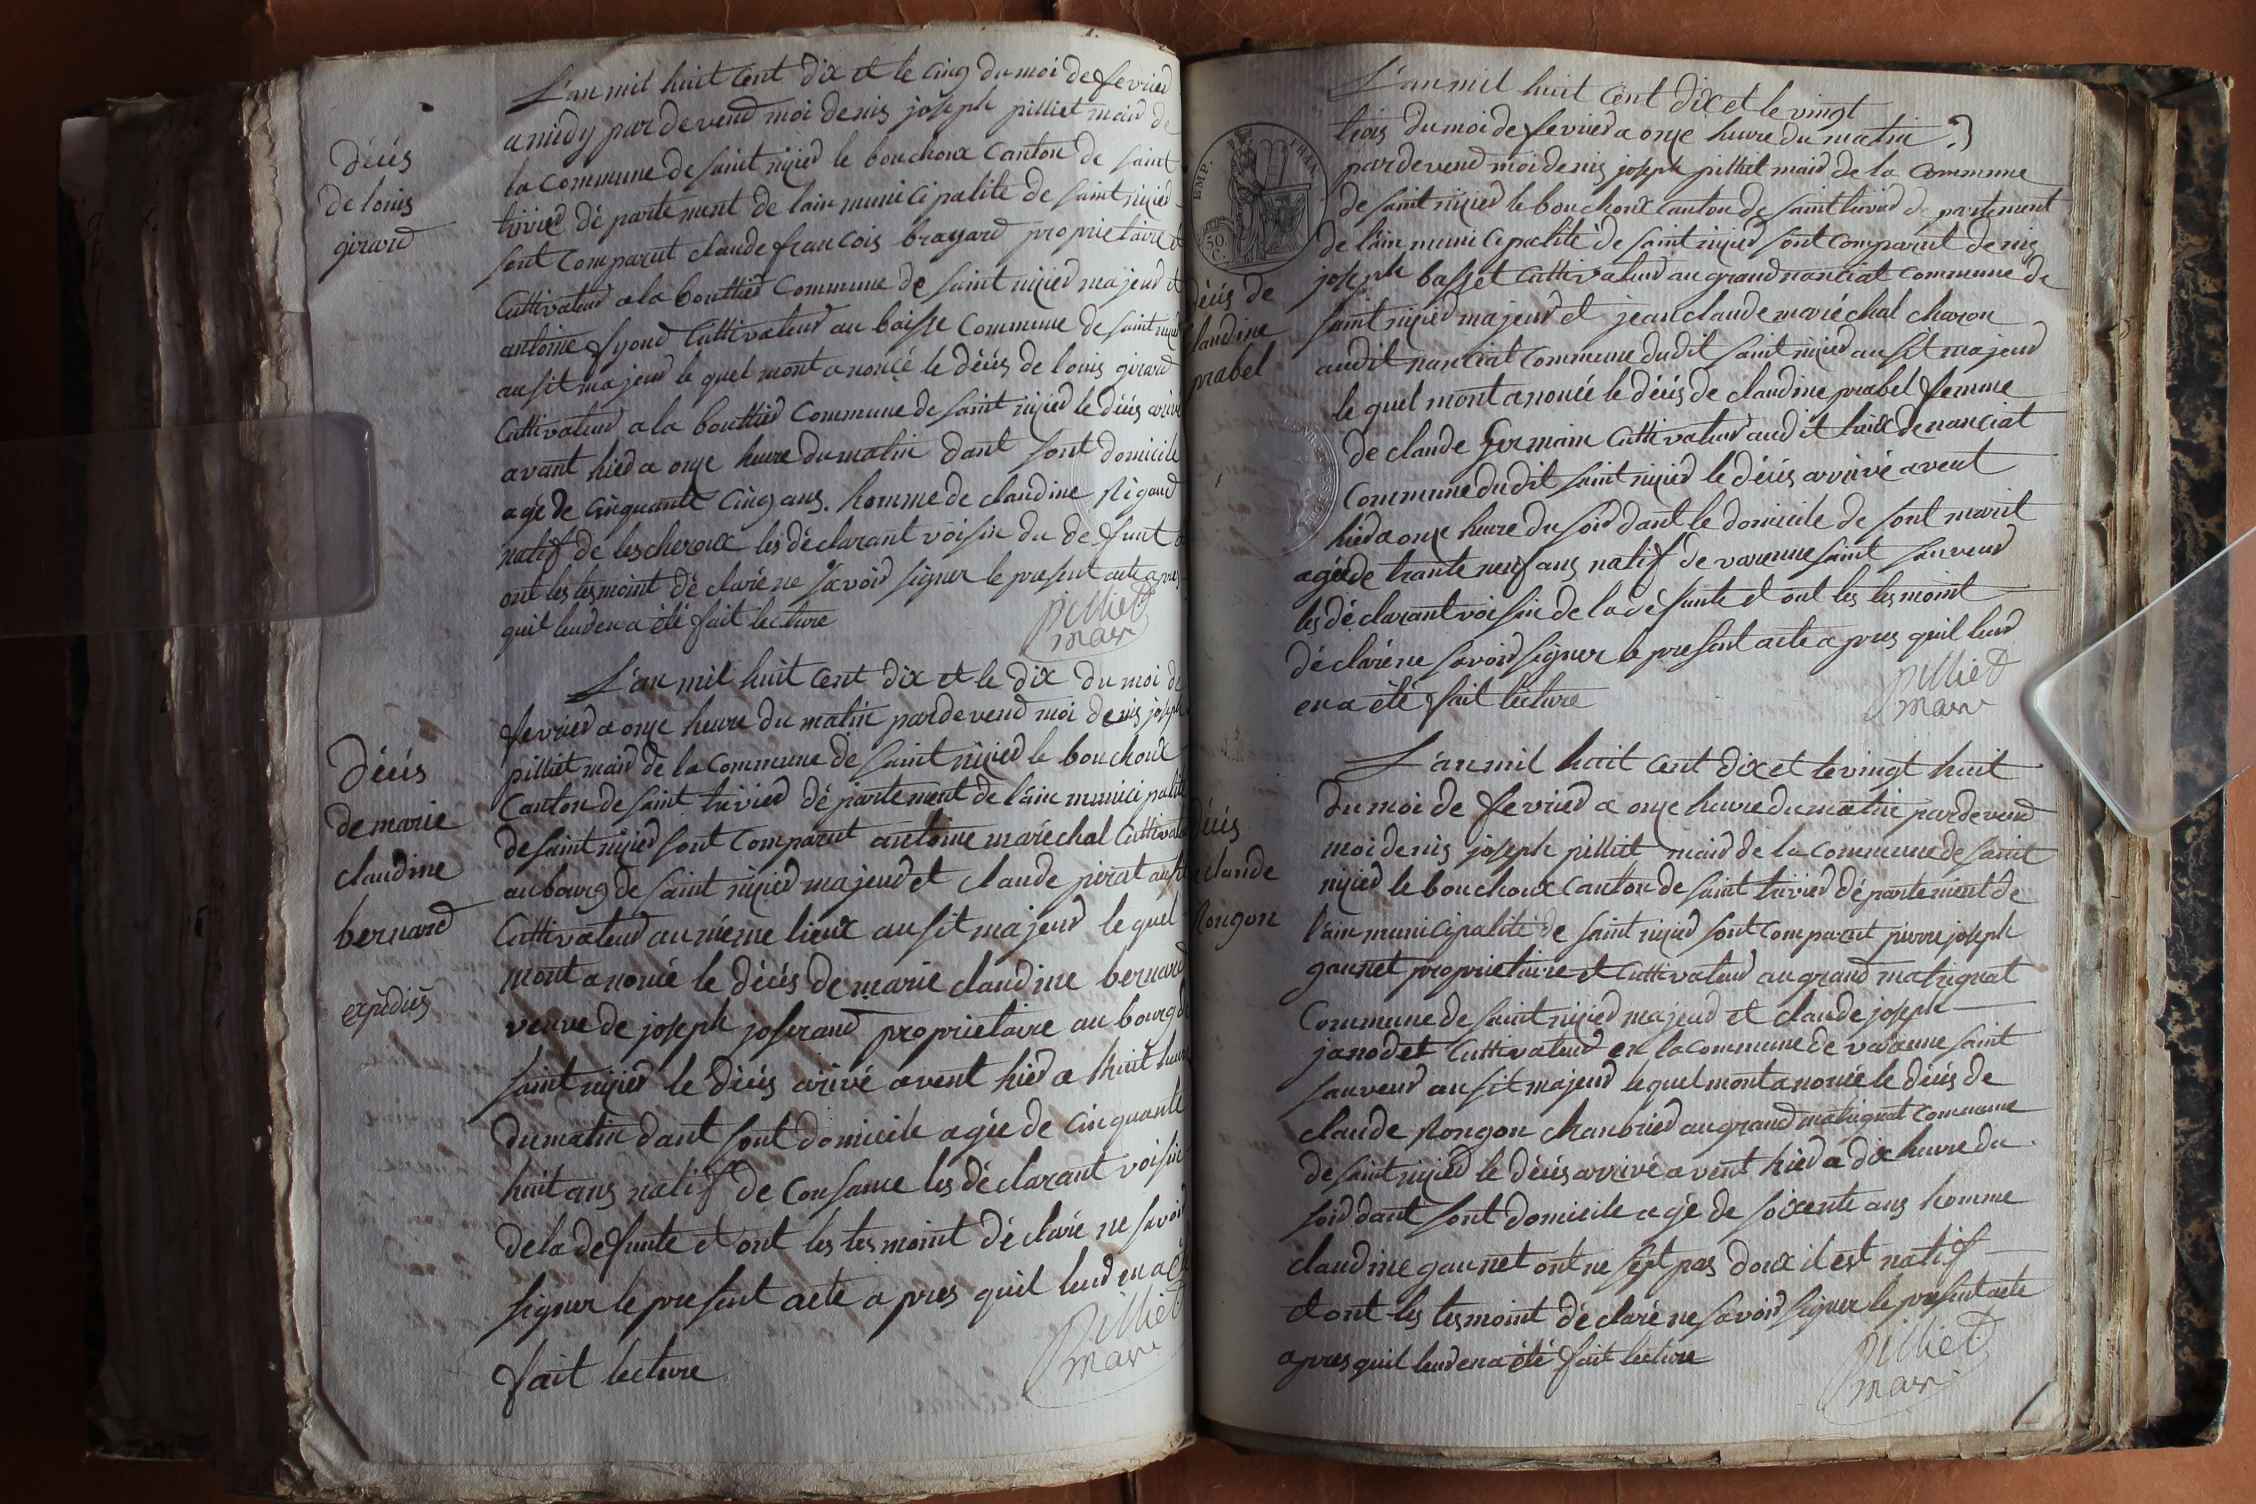 décés
de louis
girard
L'an mil huit cent dix et le cinq du moi de fevrier
a midy par devend moi denis joseph pilliet maid de
la commune de saint nizied le bouchoux canton de saint
trivied dé partement de lain municipalite de saint nizied
sont comparut claude francois brayard proprietaire et
cuttivateur a la bouttied commune de saint nizied majeur et
antoine fyoud cuttivateur au baisse commune de saint nizied
ausit majeur le quel mont anoncé le décés de louis girard
cuttivateur a la bouttied commune de saint nizied le décés arivé
avant hied a onze heure du matin dant sont domicile
agé de cinquante cinq ans. homme de claudine Rigaud
natif de lescheroux les déclarant voisin du defunt et
ont les tesmoint déclaré ne savoir signer le present acte apres
quil leur en a été fait lecture
Pilliet
mair
décés
de marie
claudine
bernard
expédiés
L'an mil huit cent dix et le dix du moi de
fevried a onze heure du matin pardevend moi denis joseph
pilliet maid de la commune de saint nizied le bouchoux
canton de saint trivied département de l'ain municipalité
de saint nizied sont comparut antoine maréchal cuttivateur
au bourg de saint nizied majeur et claude pirat ausit
cuttivateur au méme lieux ausit majeur le quel
mont anoncé le décés de marie claudine bernard
veuve de joseph joserand proprietaire au bourg de
saint nizied le décés arivé avent hied a huit heure
du matin dant sont domicile agée de cinquante
huit ans natif de consance les déclarant voisin
de la defunte et ont les tesmoint déclaré ne savoir
signer le present acte apres quil leur en a été
fait lecture
Pilliet
mair
EMP. FRAN.
50
C.
décés de
claudine
prabel
L'an mil huit cent dix et le vingt
trois du moi de fevried a onze heure du matin
pardevend moi denis joseph pilliet maid de la commune
de saint nizied le bouchoux canton de saint trivied de partement
de l'ain municipalité de saint nizied sont comparut denis
joseph basset cuttivateur au grand nanciat commune de
saint nizied majeur et jean claude maréchal charon
audit nanciat commune dudit saint nizied ausit majeur
le quel mont anoncé le décés de claudine prabel femme
de claude Germain cuttivateur audit lieux de nanciat
commune dudit saint nizied le décés arrivé avent
hied a onze heure du soir dant le domicile de sont marit
agée de trante neuf ans natif de varenne saint sauveur
les déclarant voisin de la défunte et ont les tesmoint
déclaré ne savoir signer le present acte apres quil leur
en a été fait lecture
Pilliet
mair
décés
de claude
Rongon
L'an mil huit cent dix et le vingt huit
du moi de fevried a onze heure du matin pardevend
moi denis joseph pilliet maid de la commune de saint
nizied le bouchoux canton de saint trivied département de
l'ain municipalité de saint nizied sont comparut pierre joseph
gaunet proprietaire et cuttivateur au grand matrignat
commune de saint nizied majeur et claude joseph
janodet cuttivateur en la commune de varenne saint
sauveur ausit majeur le quel mont anoncé le décés de
claude Rongon chanbried au grand matrignat commune
de saint nizied le décés arrivé avent hied a dix heure du
soir dant sont domicile agé de soixente ans homme
claudine gaunet ont ne sept pas doux il est natif
et ont les tesmoint déclaré ne savoir signer le present acte
apres quil leur en a été fait lecture
Pilliet
mair